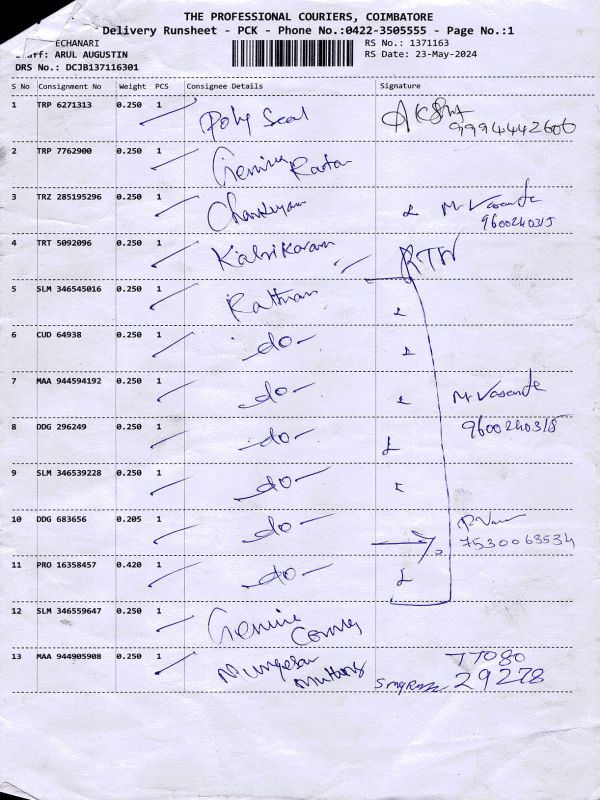 THE PROFESSIONAL COURIERS, COIMBATORE
Delivery Runsheet - PCK - Phone No.:0422-3505555 - Page No.:1
ECHANARI RS No.: 1371163
ARUL AUGUSTIN RS Date: 23-May-2024
DRS No.: DCJB137116301
S No Consignment No Weight PCS Consignee Details Signature
1 TRP 6271313 0.250 1 Poly Seal
9994442600
2 TRP 7762900 0.250 1
3 TRZ 285195296 0.250 1 Mr Vasantha
9600240315
4 TRT 5092096 0.250 1 RTN
5 SLM 346545016 0.250 1
6 CUD 64938 0.250 1 -do-
7 MAA 944594192 0.250 1 -do- Mr Vasantha
9600240315
8 DDG 296249 0.250 1 -do-
9 SLM 346539228 0.250 1 -do-
10 DDG 683656 0.205 1 -do- 7530063534
11 PRO 16358457 0.420 1 -do-
12 SLM 346559647 0.250 1
13 MAA 944905908 0.250 1 77080
29278